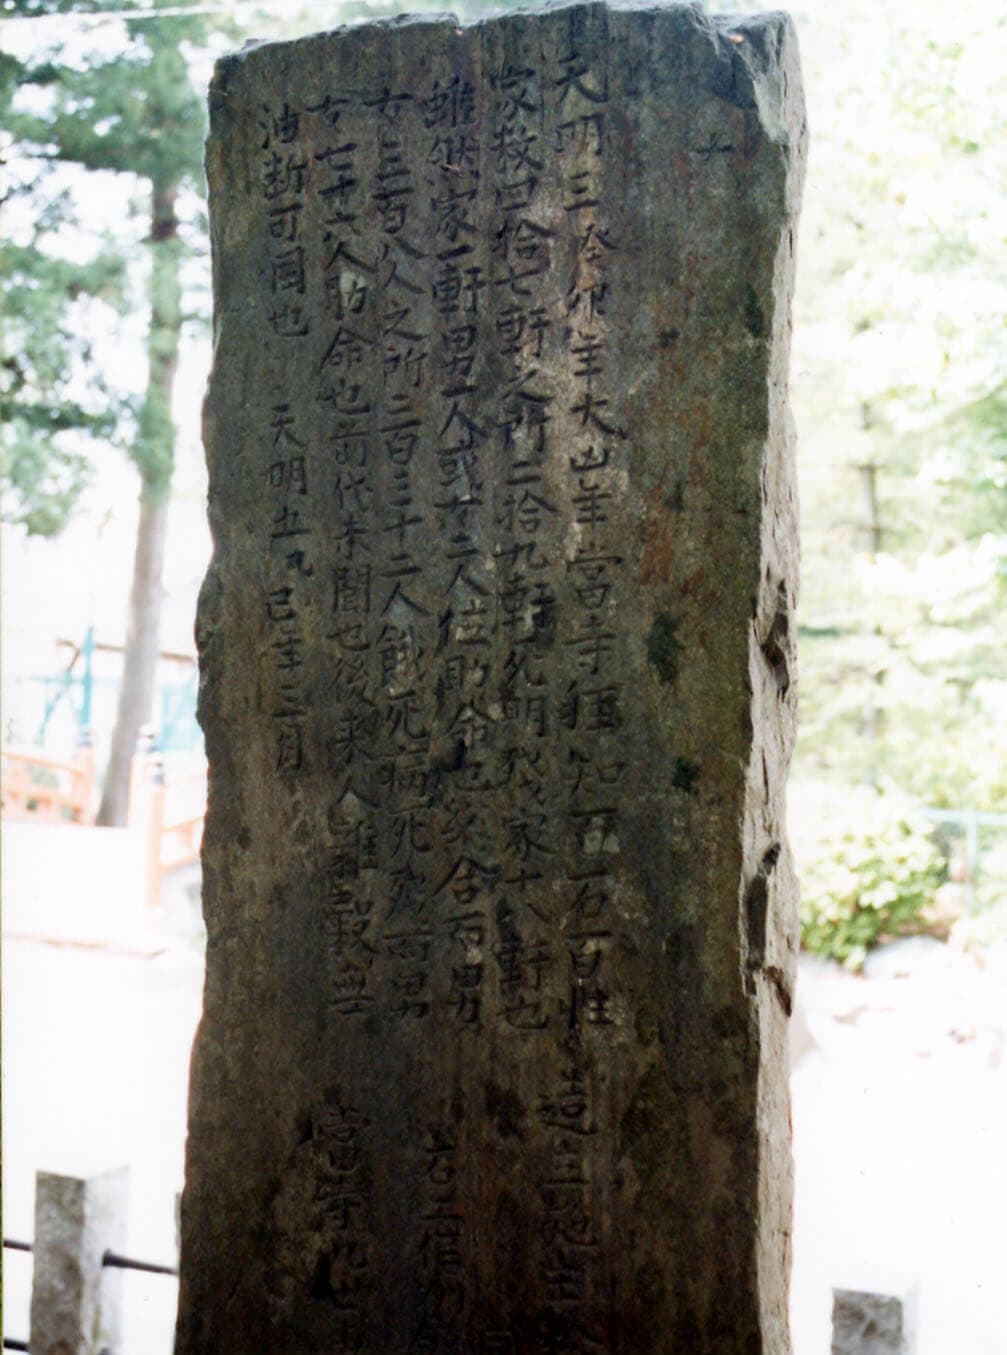 天明三癸卯年大凶年當寺領知一石百姓
家数四拾七軒之所二拾九軒死明残家十八軒也
雖然家一軒男一人或二人位助命也合而男
女三百八人之所二百三十二人餓死病死而男
女七十六人助命也前代未聞也後来人雜穀無
油断可囲也 天明五乙巳年三月
造立
石工信
當寺九世